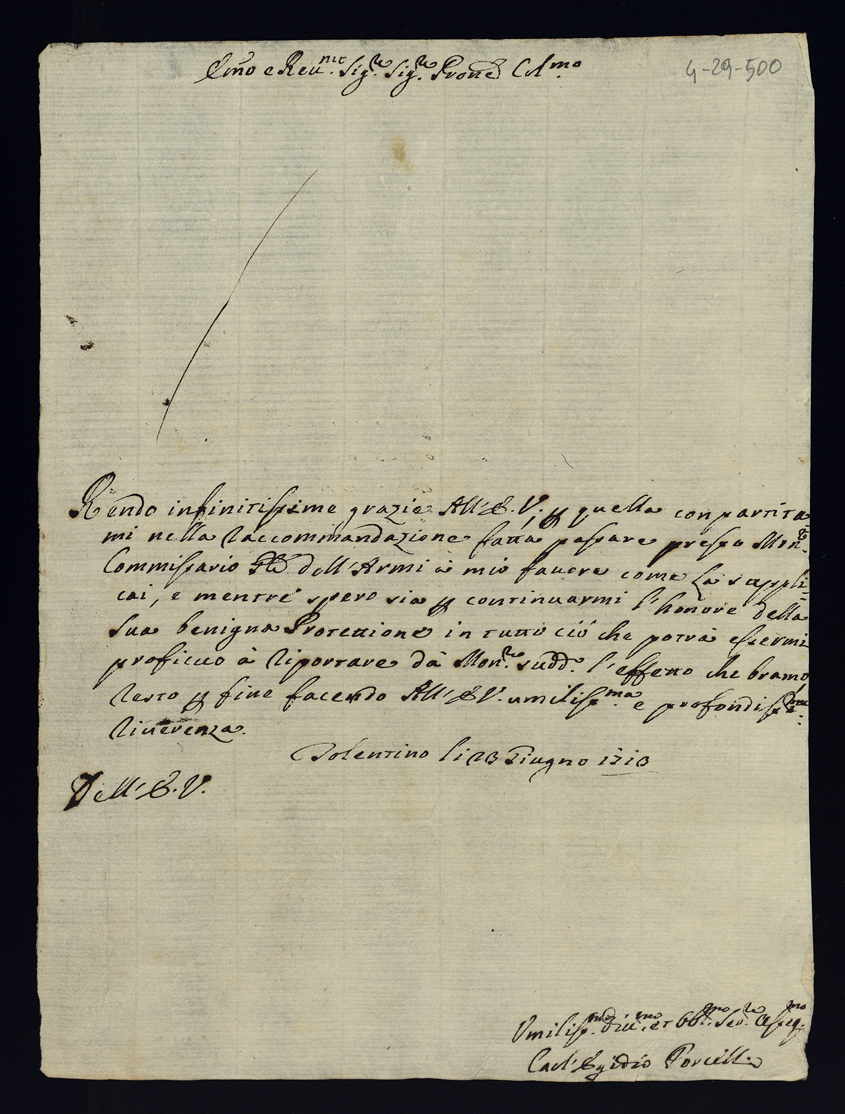 Emo e Reu.mo Sig.re Sig.re Prone Col.mo
4-29-500
Rendo infinitissime grazie All'E.V. p quella conpartita-
mi nella raccommandazione fatta passare presso Mon.re
Commissario dell'Armi à mio fauore come La suppli-
cai, e mentre spero sia p continuarmi l'honore della
Sua benigna Protettione in tutto ciò che potrà essermi
proficuo à riportare dà Mon.re sudd. l'effetto che bramo
resto p fine facendo All'E.V. umiliss.ma e profondiss.ma
riuerenza.
Tolentino li 23 Giugno 1713
Dell'E.V.
Umiliss.mo Diu.mo et Obl.mo Ser.re Osseq.mo
Carl'Egidio Porcelli